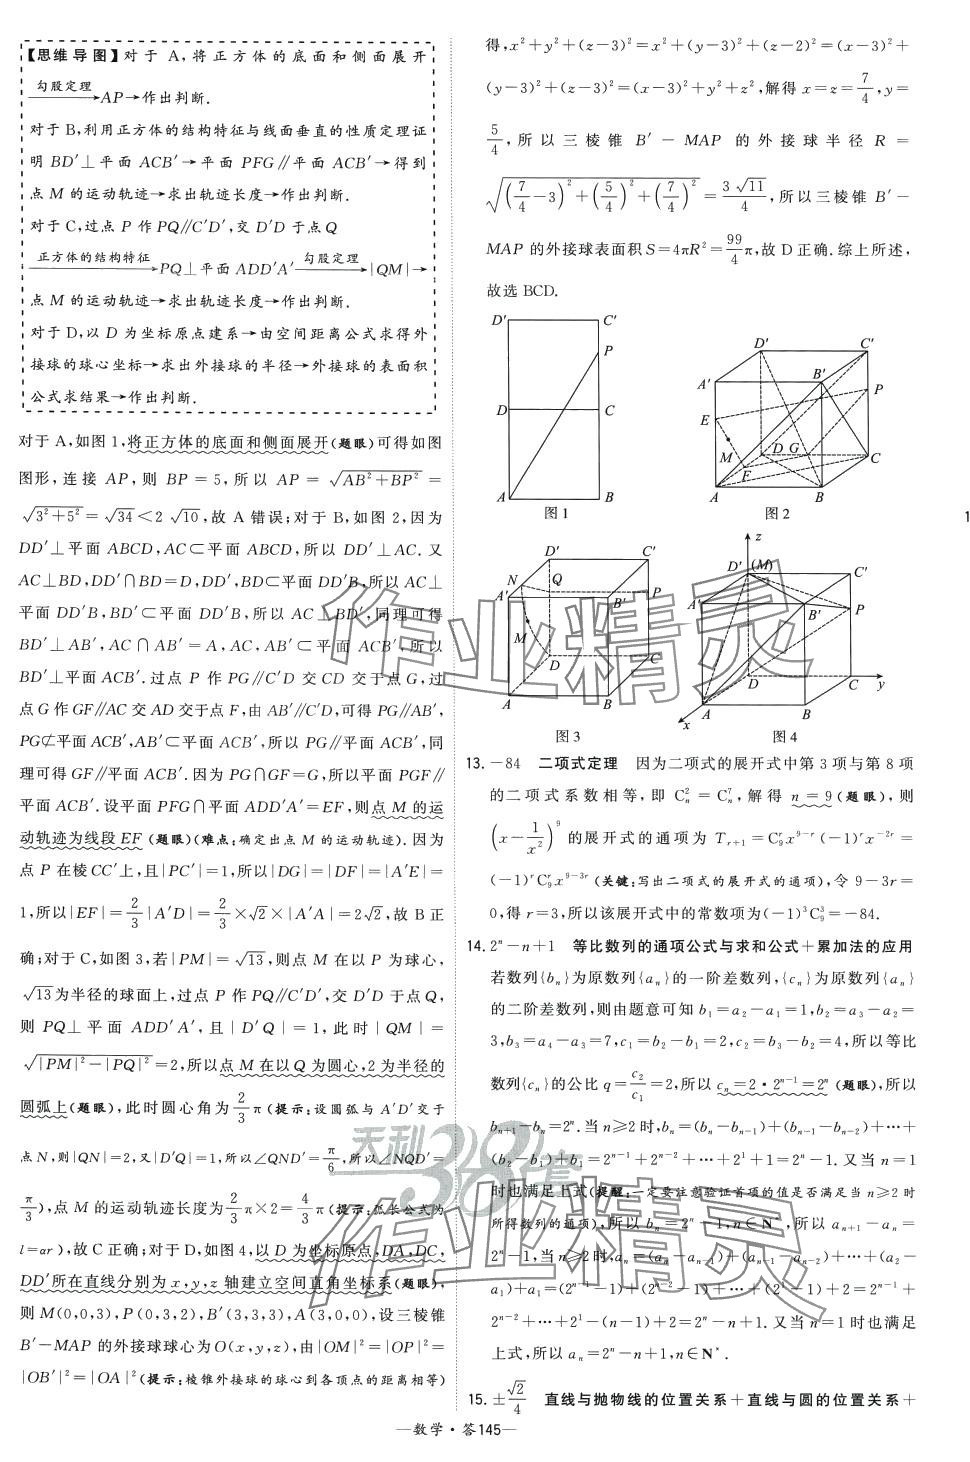 【思维导图】对于 A,将正方体的底面和侧面展开
勾股定理→AP→作出判断.
对于 B,利用正方体的结构特征与线面垂直的性质定理证
明 BD′⊥平面 ACB′→平面 PFG∥平面 ACB′→得到
点 M 的运动轨迹→求出轨迹长度→作出判断.
对于 C,过点 P 作 PQ∥C′D′,交 D′D 于点 Q
正方体的结构特征→PQ⊥平面 ADD′A′ 勾股定理→|QM|→
点 M 的运动轨迹→求出轨迹长度→作出判断.
对于 D,以 D 为坐标原点建系→由空间距离公式求得外
接球的球心坐标→求出外接球的半径→外接球的表面积
公式求结果→作出判断.
对于 A,如图 1,将正方体的底面和侧面展开(题眼)可得如图
图形,连接 AP,则 BP=5,所以 AP=√(AB²+BP²)=
√(3²+5²)=√34<2√10,故 A 错误;对于 B,如图 2,因为
DD′⊥平面 ABCD,AC⊂平面 ABCD,所以 DD′⊥AC.又
AC⊥BD,DD′∩BD=D,DD′,BD⊂平面 DD′B,所以 AC⊥
平面 DD′B,BD′⊂平面 DD′B,所以 AC⊥BD′,同理可得
BD′⊥AB′,AC∩AB′=A,AC,AB′⊂平面 ACB′,所以
BD′⊥平面 ACB′.过点 P 作 PG∥C′D 交 CD 交于点 G,过
点 G 作 GF∥AC 交 AD 交于点 F,由 AB′∥C′D,可得 PG∥AB′,
PG⊄平面 ACB′,AB′⊂平面 ACB′,所以 PG∥平面 ACB′,同
理可得 GF∥平面 ACB′.因为 PG∩GF=G,所以平面 PGF∥
平面 ACB′.设平面 PFG∩平面 ADD′A′=EF,则点 M 的运
动轨迹为线段 EF(题眼)(难点:确定出点 M 的运动轨迹).因为
点 P 在棱 CC′上,且|PC′|=1,所以|DG|=|DF|=|A′E|=
1,所以|EF|=2/3|A′D|=2/3×√2×|A′A|=2√2,故 B 正
确;对于 C,如图 3,若|PM|=√13,则点 M 在以 P 为球心,
√13为半径的球面上,过点 P 作 PQ∥C′D′,交 D′D 于点 Q,
则 PQ⊥平面 ADD′A′,且|D′Q|=1,此时|QM|=
√(|PM|²-|PQ|²)=2,所以点 M 在以 Q 为圆心,2 为半径的
圆弧上(题眼),此时圆心角为2/3π(提示:设圆弧与 A′D′交于
点 N,则|QN|=2,又|D′Q|=1,所以∠QND′=π/6,所以∠NQD′=
π/3),点 M 的运动轨迹长度为2/3π×2=4/3π(提示:弧长公式为
l=αr),故 C 正确;对于 D,如图 4,以 D 为坐标原点,DA,DC,
DD′所在直线分别为 x,y,z 轴建立空间直角坐标系(题眼),
则 M(0,0,3),P(0,3,2),B′(3,3,3),A(3,0,0),设三棱锥
B′-MAP 的外接球球心为 O(x,y,z),由|OM|²=|OP|²=
|OB′|²=|OA|²(提示:棱锥外接球的球心到各顶点的距离相等)
得,x²+y²+(z-3)²=x²+(y-3)²+(z-2)²=(x-3)²+
(y-3)²+(z-3)²=(x-3)²+y²+z²,解得 x=z=7/4,y=
5/4,所以三棱锥 B′-MAP 的外接球半径 R=
√((7/4-3)²+(5/4)²+(7/4)²)=3√11/4,所以三棱锥 B′-
MAP 的外接球表面积 S=4πR²=99/4π,故 D 正确.综上所述,
故选 BCD.
D′ C′
P
D C
A B
图 1
D′ C′
A′ B′
P
E
M D G C
F
A B
图 2
D′ C′
N Q
A′ B′ P
M
D C
A B
图 3
z
D′ (M) C′
A′ B′ P
D C y
x A B
图 4
13.-84 二项式定理 因为二项式的展开式中第 3 项与第 8 项
的二项式系数相等,即 C²ₙ=C⁷ₙ,解得 n=9(题眼),则
(x-1/x²)⁹的展开式的通项为 Tᵣ₊₁=C₉ʳx⁹⁻ʳ(-1)ʳx⁻²ʳ=
(-1)ʳC₉ʳx⁹⁻³ʳ(关键:写出二项式的展开式的通项),令 9-3r=
0,得 r=3,所以该展开式中的常数项为(-1)³C₉³=-84.
14.2ⁿ-n+1 等比数列的通项公式与求和公式+累加法的应用
若数列{bₙ}为原数列{aₙ}的一阶差数列,{cₙ}为原数列{aₙ}
的二阶差数列,则由题意可知 b₁=a₂-a₁=1,b₂=a₃-a₂=
3,b₃=a₄-a₃=7,c₁=b₂-b₁=2,c₂=b₃-b₂=4,所以等比
数列{cₙ}的公比 q=c₂/c₁=2,所以 cₙ=2·2ⁿ⁻¹=2ⁿ(题眼),所以
bₙ₊₁-bₙ=2ⁿ.当 n≥2 时,bₙ=(bₙ-bₙ₋₁)+(bₙ₋₁-bₙ₋₂)+⋯+
(b₂-b₁)+b₁=2ⁿ⁻¹+2ⁿ⁻²+⋯+2¹+1=2ⁿ-1.又当 n=1
时也满足上式(提醒:一定要注意验证首项的值是否满足当 n≥2 时
所得数列的通项),所以 bₙ=2ⁿ-1,n∈N*,所以 aₙ₊₁-aₙ=
2ⁿ-1,当 n≥2 时,aₙ=(aₙ-aₙ₋₁)+(aₙ₋₁-aₙ₋₂)+⋯+(a₂-
a₁)+a₁=(2ⁿ⁻¹-1)+(2ⁿ⁻²-1)+⋯+(2¹-1)+2=2ⁿ⁻¹+
2ⁿ⁻²+⋯+2¹-(n-1)+2=2ⁿ-n+1.又当 n=1 时也满足
上式,所以 aₙ=2ⁿ-n+1,n∈N*.
15.±√2/4 直线与抛物线的位置关系+直线与圆的位置关系+
1
作业精灵
天利38套
作业精灵
—数学·答145—